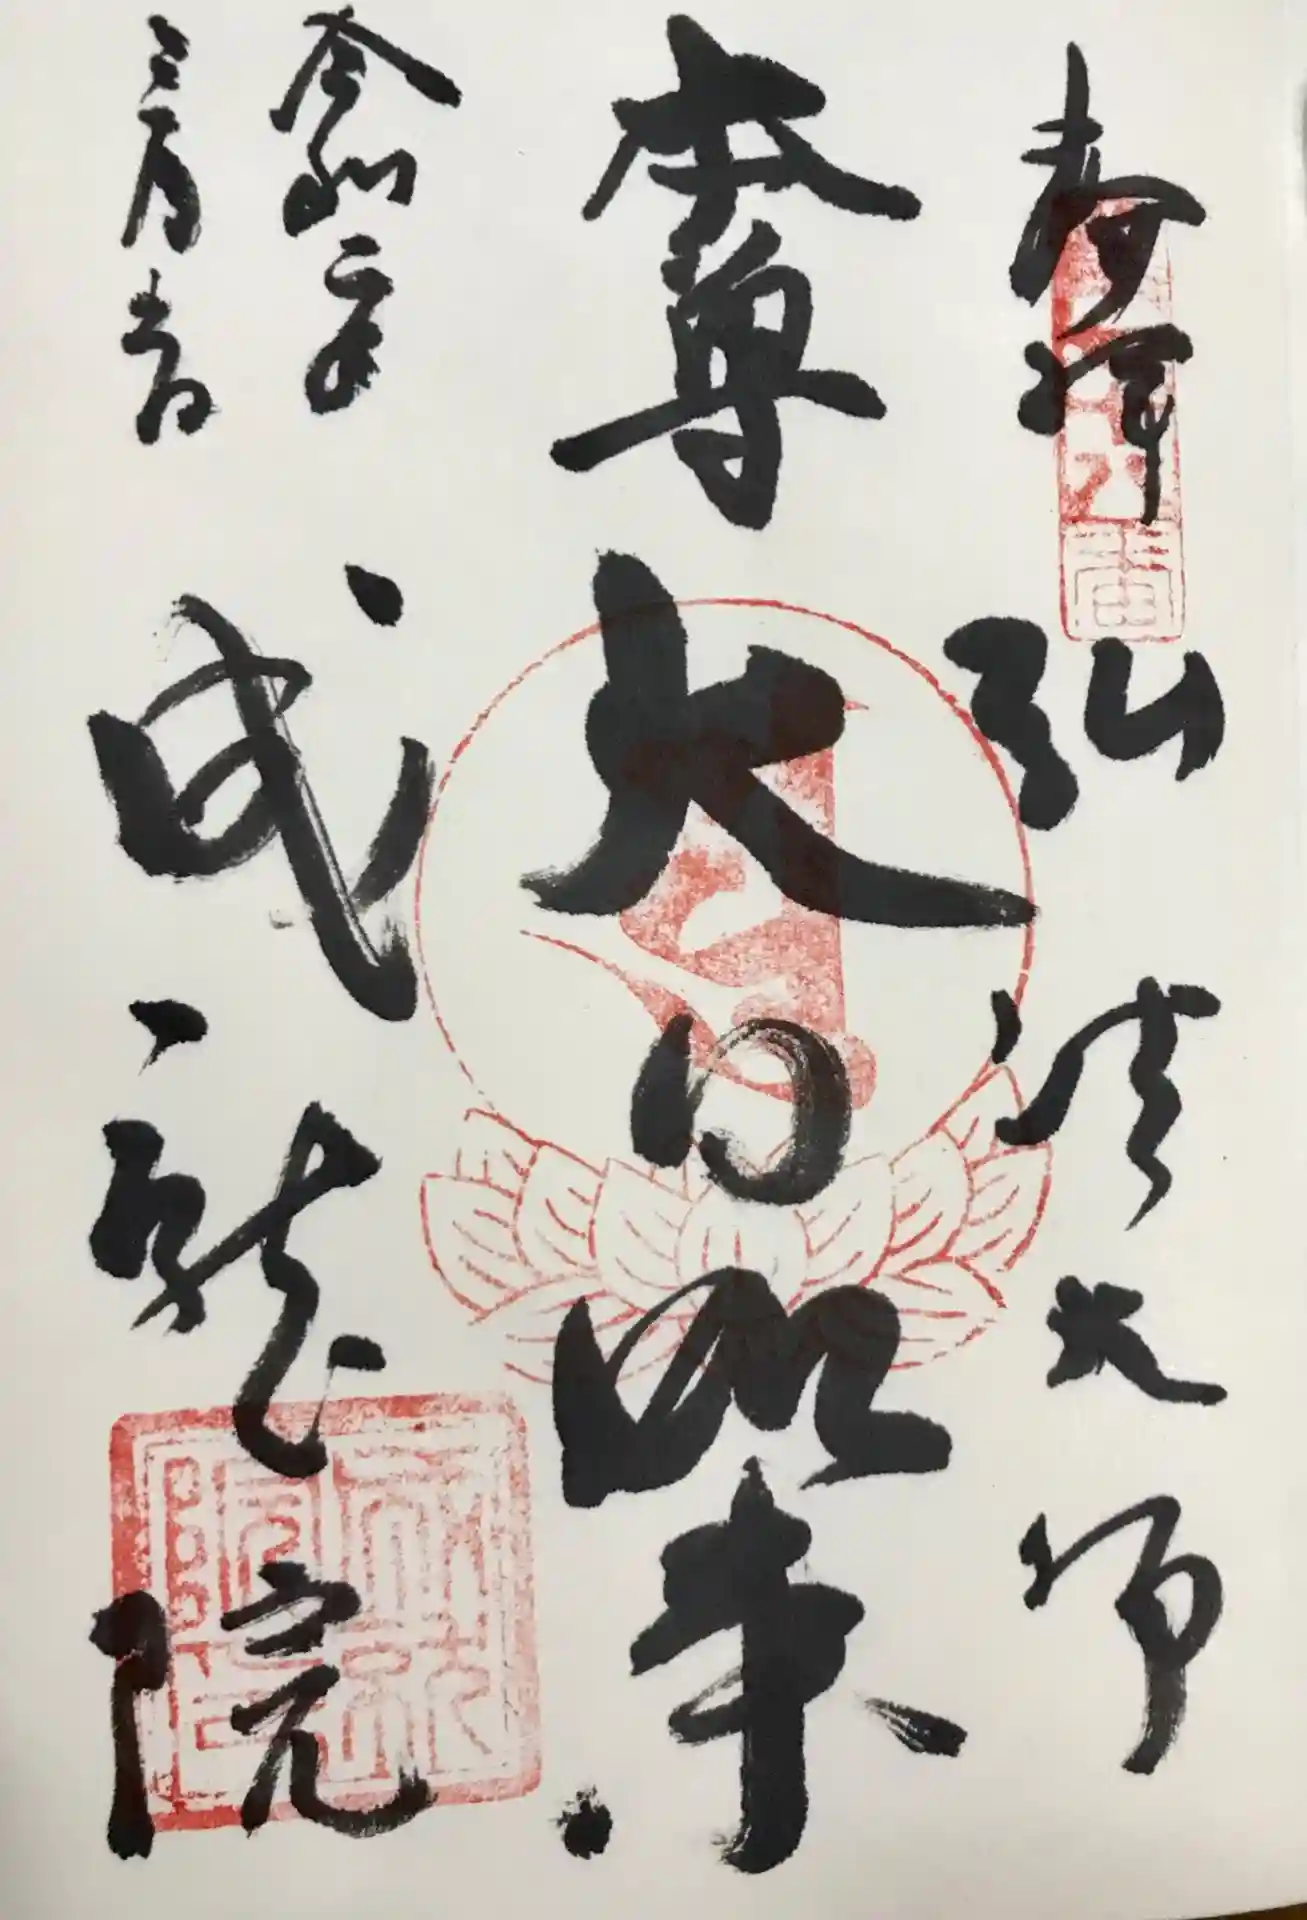 奉拝 弘法大師
本尊 大日如来
令和二年
三月吉日
成就院